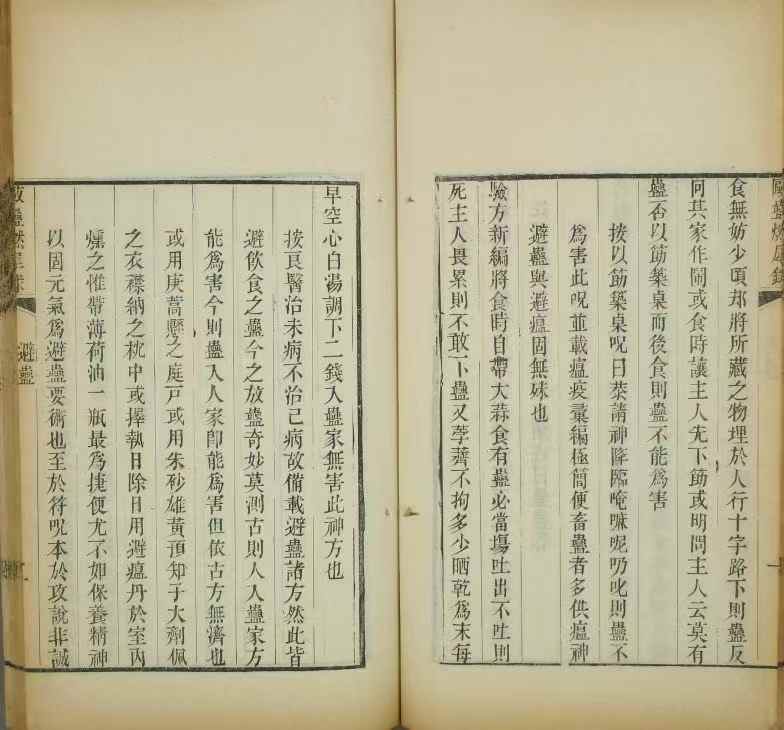 食無妨少頃却將所藏之物埋於人行十字路下則蠱反
向其家作鬧或食時讓主人先下筯或明問主人云莫有
蠱否以筯築桌而後食則蠱不能爲害
按以筯築桌呪曰恭請神降臨唵嘛呢叭叱則蠱不
爲害此呪並載瘟疫彙編極簡便畜蠱者多供瘟神
避蠱與避瘟固無殊也
驗方新編將食時自帶大蒜食有蠱必當場吐出不吐則
死主人畏累則不敢下蠱又荸薺不拘多少晒乾爲末每
早空心白湯調下二錢入蠱家無害此神方也
按良醫治未病不治已病故備載避蠱諸方然此皆
避飲食之蠱今之放蠱奇妙莫測古則人入蠱家方
能爲害今則蠱入人家卽能爲害但依古方無濟也
或用庚蒿懸之庭戸或用朱砂雄黃預知子大劑佩
之衣襟納之枕中或擇執日除日用避瘟丹於室內
燻之惟帶薄荷油一瓶最爲捷便尤不如保養精神
以固元氣爲避蠱要術也至於符呪本於攻說非誠
避蠱